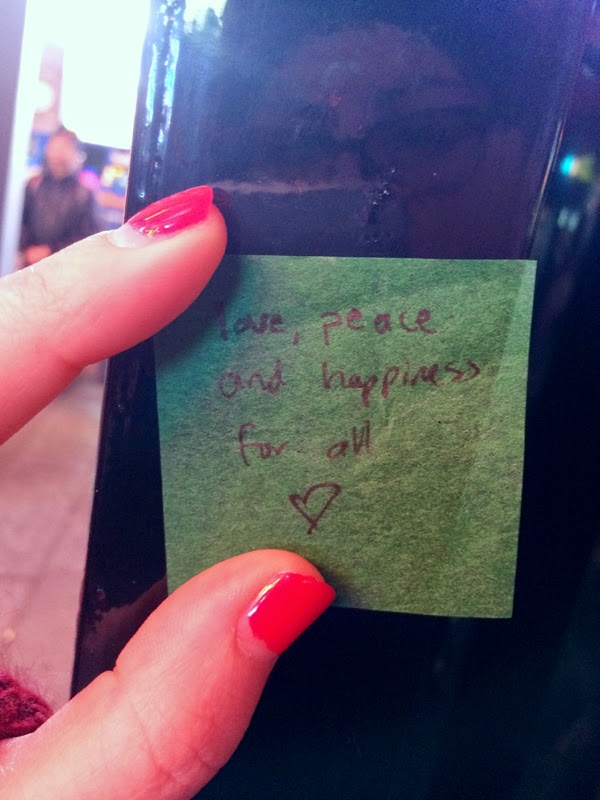 love, peace
and happiness
for all